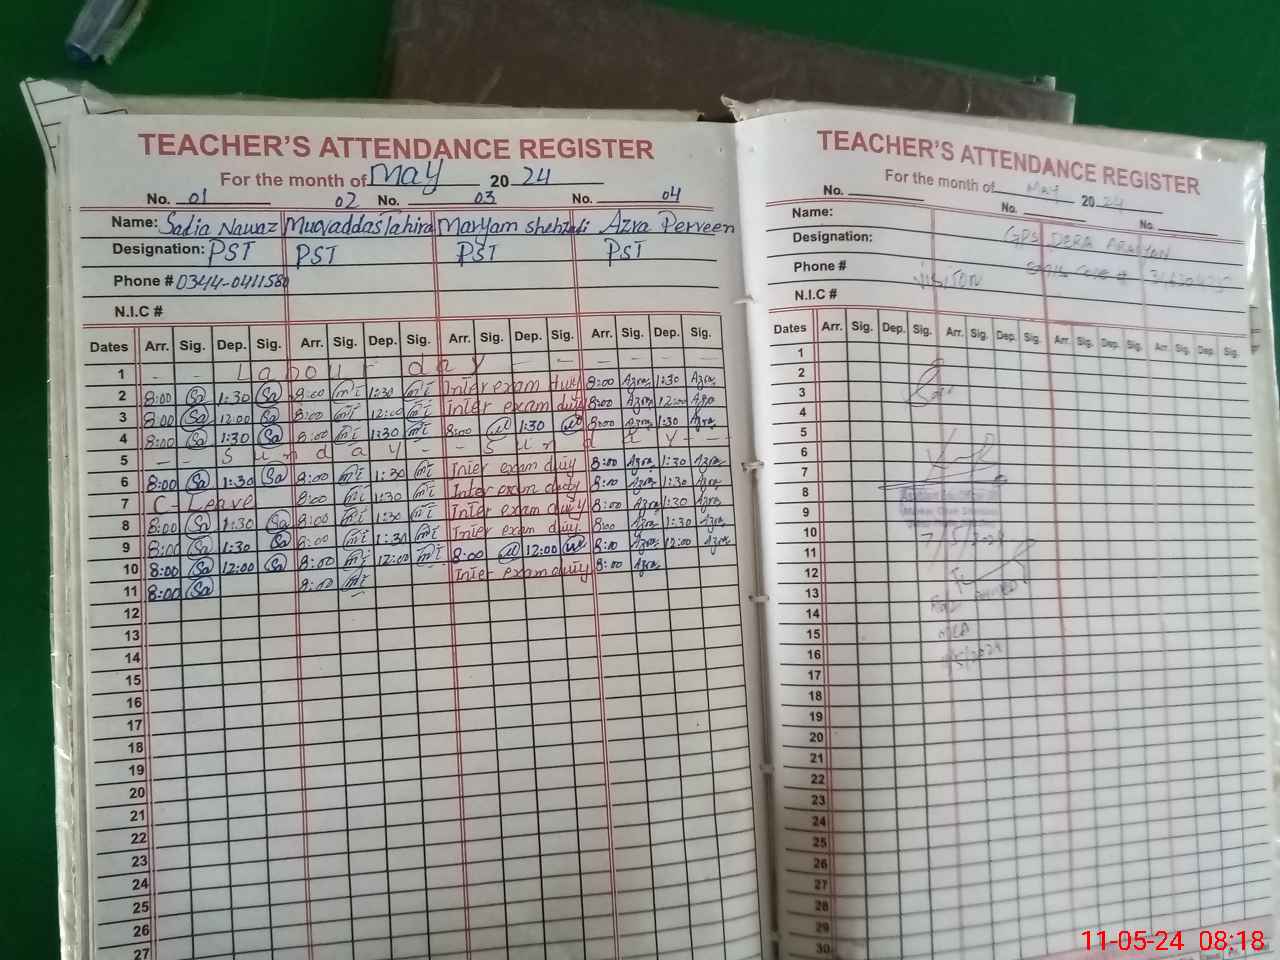 TEACHER'S ATTENDANCE REGISTER
For the month of May 2024
No. 01 02 No. 03 No. 04
Name: Sadia Nawaz Muqaddas Tahira Maryam shehzadi Azra Perveen
Designation: PST PST PST PST
Phone # 0344-0411580
N.I.C #
Dates Arr. Sig. Dep. Sig. Arr. Sig. Dep. Sig. Arr. Sig. Dep. Sig. Arr. Sig. Dep. Sig.
1 - - Labour day - - - - -
2 8:00 Sa 1:30 Sa 8:00 MT 1:30 MT Inter exam duty 8:00 Azra 1:30 Azra
3 8:00 Sa 12:00 Sa 8:00 MT 12:00 MT Inter exam duty 8:00 Azra 12:00 Azra
4 8:00 Sa 1:30 Sa 8:00 MT 1:30 MT 8:00 1:30 8:00 Azra 1:30 Azra
5 - - Sunday - - Sunday - -
6 8:00 Sa 1:30 Sa 8:00 MT 1:30 MT Inter exam duty 8:00 Azra 1:30 Azra
7 C-Leave 8:00 MT 1:30 MT Inter exam duty 8:00 Azra 1:30 Azra
8 8:00 Sa 1:30 Sa 8:00 MT 1:30 MT Inter exam duty 8:00 Azra 1:30 Azra
9 8:00 Sa 1:30 Sa 8:00 MT 1:30 MT Inter exam duty 8:00 Azra 1:30 Azra
10 8:00 Sa 12:00 Sa 8:00 MT 12:00 MT 8:00 12:00 8:00 Azra 12:00 Azra
11 8:00 Sa 8:00 MT Inter exam duty 8:00 Azra
12
13
14
15
16
17
18
19
20
21
22
23
24
25
26
27
TEACHER'S ATTENDANCE REGISTER
For the month of May 2024
No. No. No.
Name:
Designation: GPS DERA
Phone # VISITOR
N.I.C #
Dates Arr. Sig. Dep. Sig. Arr. Sig. Dep. Sig. Arr. Sig. Dep. Sig. Arr. Sig. Dep. Sig.
1
2
3
4
5
6
7
8
9
10 7/5/2024
11
12
13
14
15 MEA
16
17
18
19
20
21
22
23
24
25
26
27
28
29
30
11-05-24 08:18